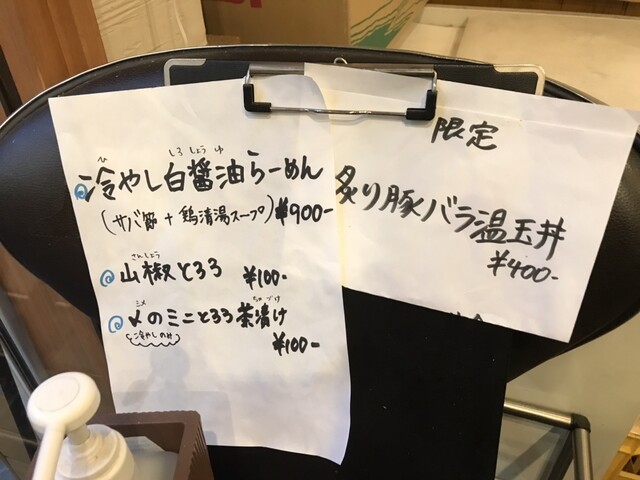 冷やし白醤油らーめん
ひ しろ しょう ゆ
(サバ節 + 鶏清湯スープ) ¥900-
山椒とろろ ¥100-
さんしょう
〆のミニとろろ茶漬け
シメ ちゃづけ
冷やしのみ
¥100-
限定
炙り豚バラ温玉丼
¥400-